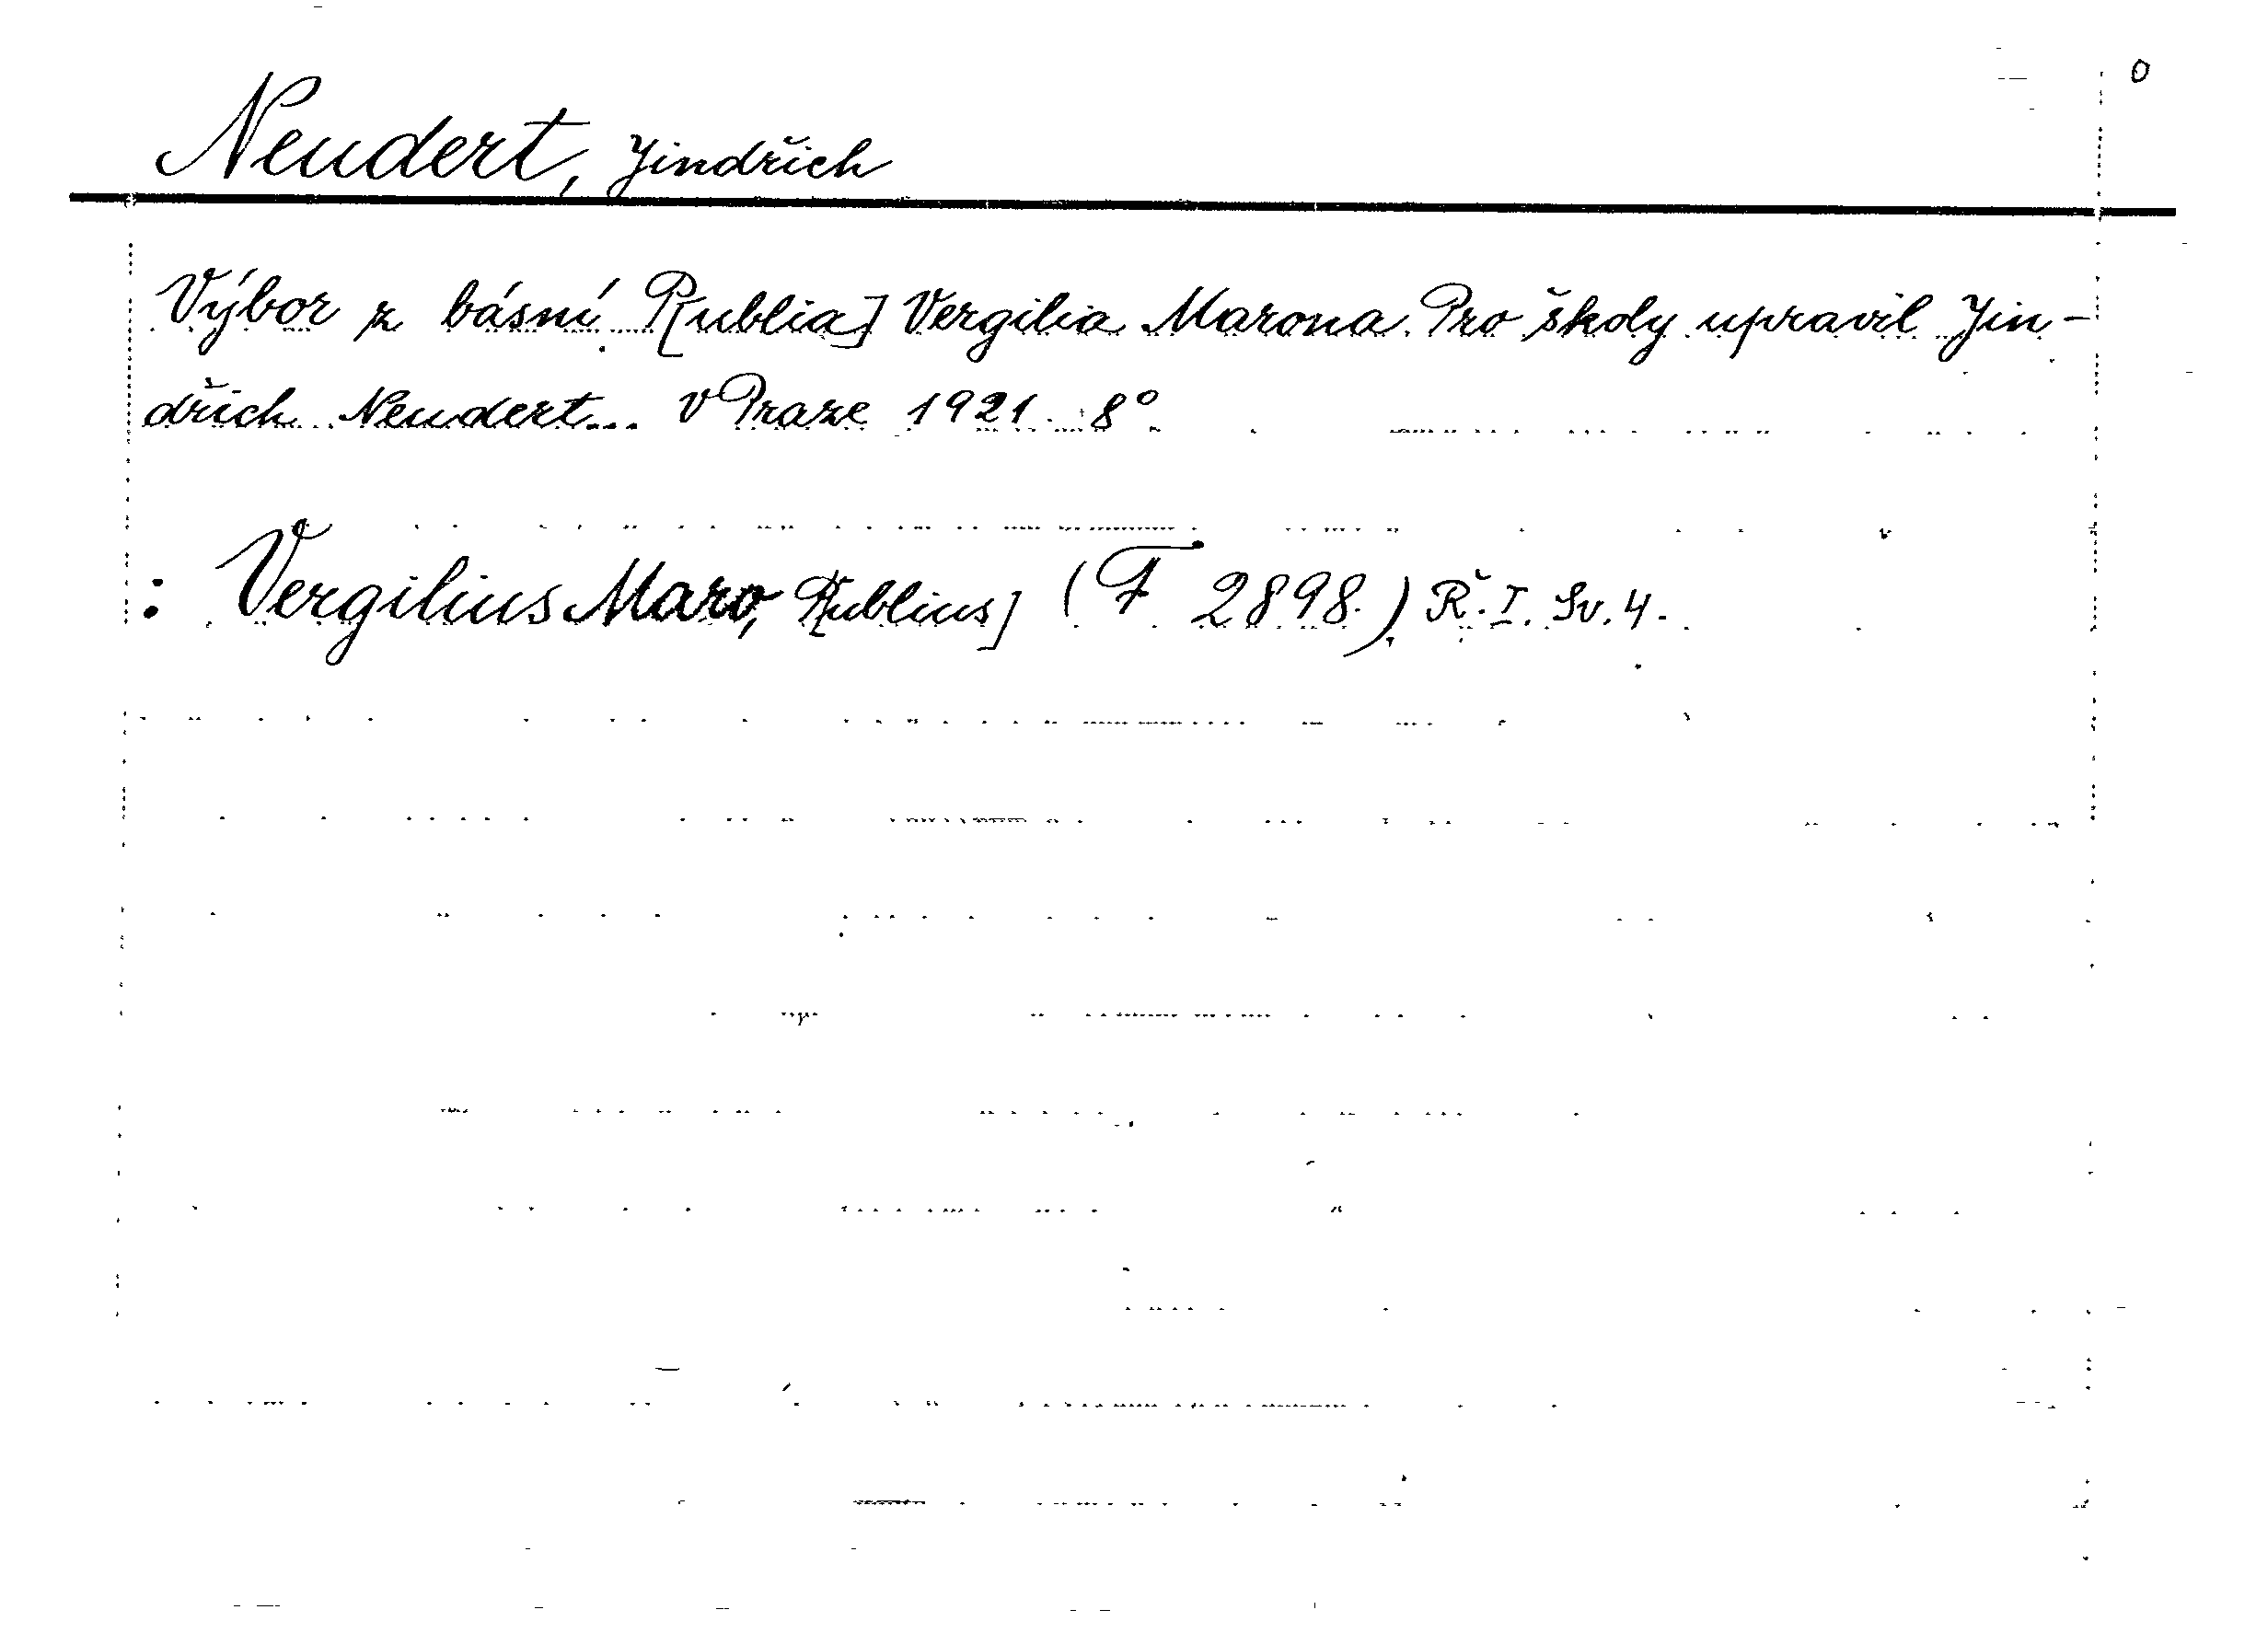 o
Neudert, Jindřich
Výbor z básní P[ublia] Vergilia Marona. Pro školy upravil Jin-
dřich Neudert... V Praze 1921. 8°
: Vergilius Maro, P[ublius] (F 2898.) Ř. I. Sv. 4.